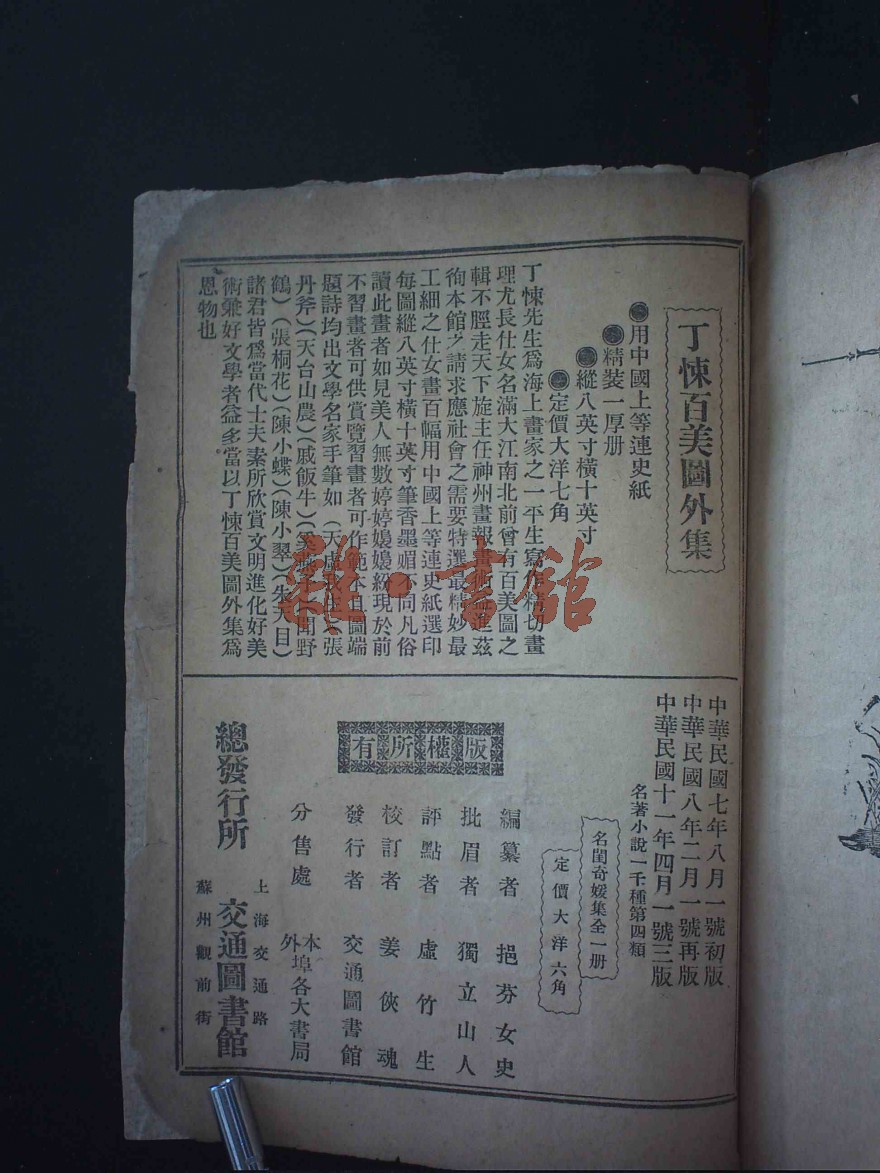 丁悚百美圖外集
●用中國上等連史紙
●精裝一厚册
●縱八英寸橫十英寸
●定價大洋七角
丁悚先生爲海上畫家之一平生寫作精切畫
理尤長仕女名滿大江南北前曾有百美圖之
輯不脛走天下旋主任神州畫報畫術益進茲
徇本館之請求應社會之需要特選最精妙最
工細之仕女畫百幅用中國上等連史紙選印
每圖縱八英寸橫十英寸筆香墨媚不同凡俗
讀此畫者如見美人無數婷婷嬝嬝紛現於前
不習畫者可供賞覽習畫者可作範本且圖端
題詩均出文學名家手筆如(天虛我生)(張
丹斧)(天台山農)(戚飯牛)(聞野
鶴)(張桐花)(陳小蝶)(陳小翠)(朱天目)
諸君皆爲當代士夫素所欣賞文明進化好美
術兼好文學者益多當以丁悚百美圖外集爲
恩物也
中華民國七年八月一號初版
中華民國八年二月一號再版
中華民國十一年四月一號三版
名著小說一千種第四類
名閨奇媛集全一册
定價大洋六角
版權所有
編纂者 挹芬女史
批眉者 獨立山人
評點者 虛竹生
校訂者 姜俠魂
發行者 交通圖書館
分售處 本外埠各大書局
總發行所 上海交通路 交通圖書館 蘇州觀前街
雜·書館